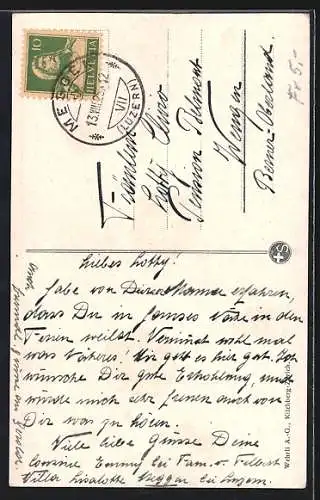 10
HELVETIA
MEGGEN
13.VIII.
12
VII
(LUZERN)
Fräulein
Lotty
Pension Belmont
Wengen
Berner-Oberland.
Fr 5.-
Liebes Lotty!
Habe von Deiner Mama erfahren,
dass Du in famoser Nähe in den
Ferien weilst. Vernimmt wohl mal
was Näheres! Mir geht es hier gut. Ich
wünsche Dir gute Erholung, und
würde mich sehr freuen auch von
Dir was zu hören.
Viele liebe Grüsse Deine
Cousine Emmy bei Fam. v.
Villa Lisalotte Meggen bei Luzern.
Wehrli A.-G., Kilchberg-Zürich.